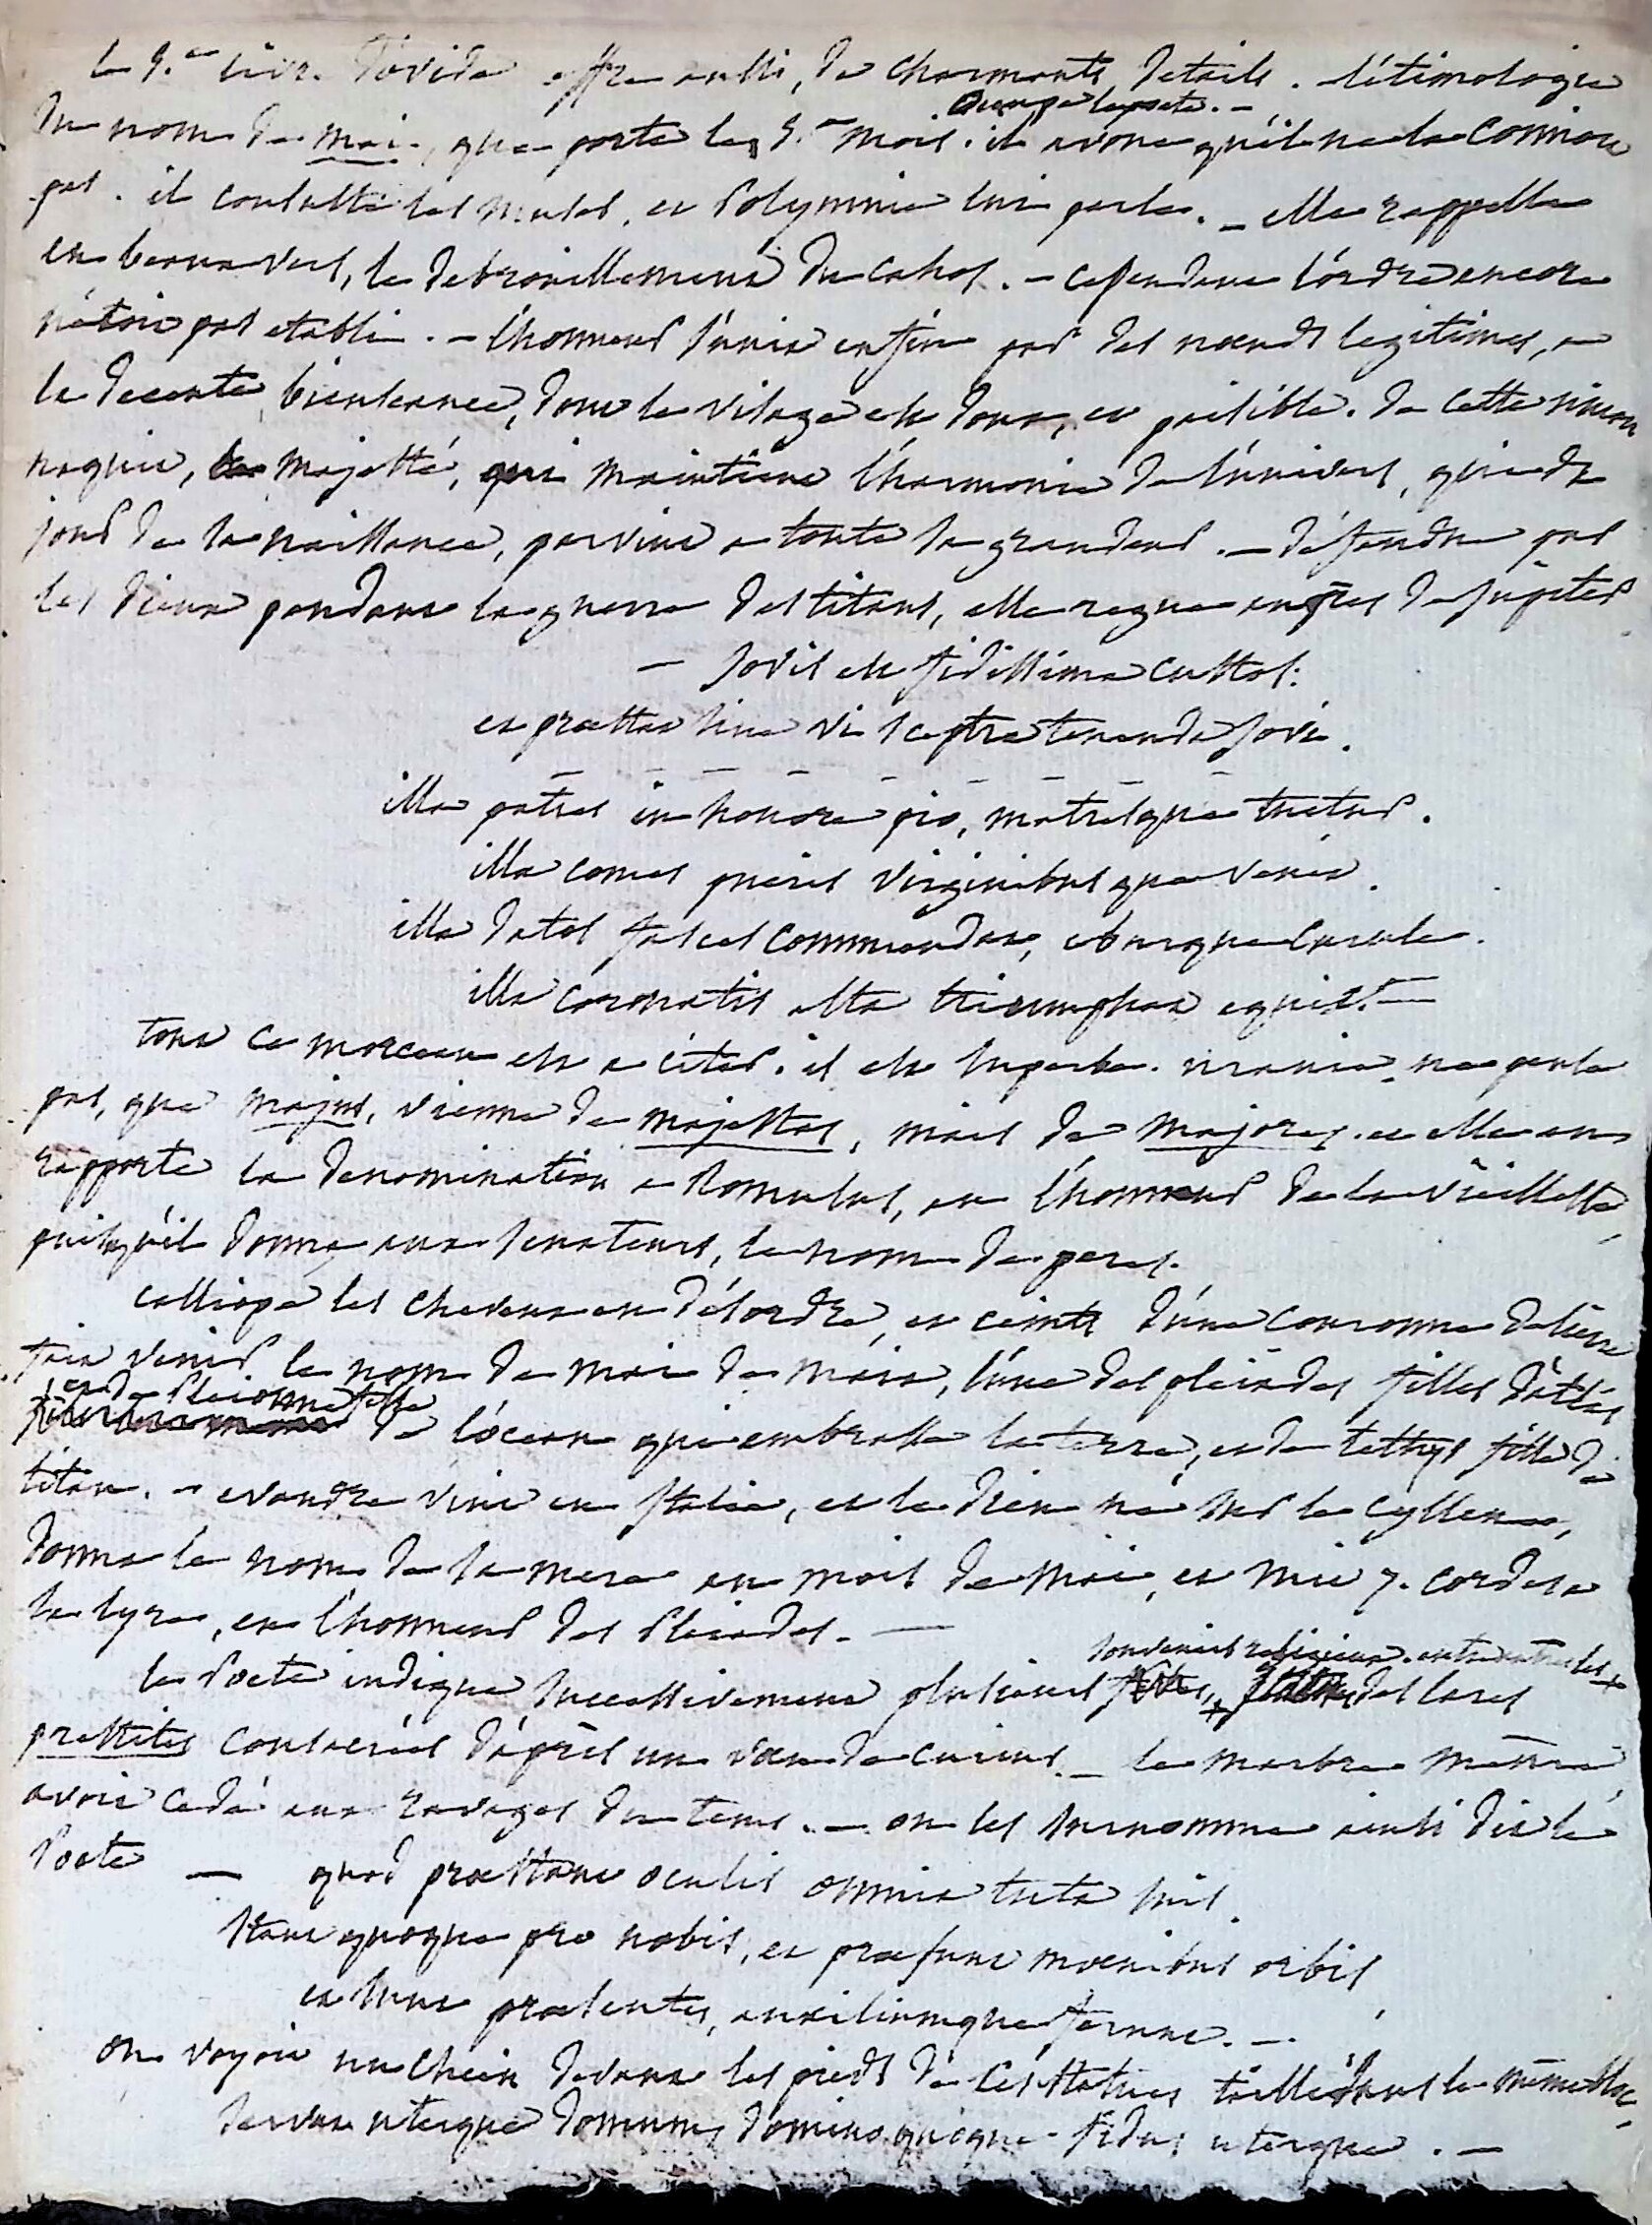 le 5.e livre d'ovide offre aussi, de charmants details. l'étimologie
du nom de mai, que porte le 5.e mois. il avoue qu'il ne la connoit
pas. il consulte les muses, et Polymnie lui parle. - elle rappelle
en beaux vers, le debrouillement du cahos. - cependant l'ordre encore
n'étoit pas etabli. - l'honneur s'unit enfin par des nœuds legitimes, a
la decente bienséance, dont le visage est doux, et paisible. de cette union
naquit, la majesté, qui maintient l'harmonie de l'univers, qui du
jour de sa naissance, parvint a toute sa grandeur. - défendue par
les dieux pendant la guerre des titans, elle regne auprès de jupiter
- Jovis est fidissima custos:
et præstat sine vi sceptra tenenda Jovi.
illa patres in honore pio, matresque tuetur.
illa comes pueris virginibusque venit.
illa datos fasces commendat, eburque curule.
illa coronatis alta triumphat equis. -
tout ce morceau est a citer. il est superbe. uranie, ne pense
pas, que majus, vienne de majestas, mais de majores. et elle en
rapporte la denomination a Romulus, en l'honneur de la vieillesse,
puisqu'il donna aux senateurs, le nom de peres.
calliope les cheveux en désordre, et ceints d'une couronne de lierre
fait venir le nom de mai de maia, l'une des pleiades filles d'atlas
et de Pleionne fille
de l'océan qui embrasse la terre, et de tethys fille de
titan. - evandre vint en Italie, et le dieu né sur le cyllene,
donna le nom de sa mere au mois de mai, et mit 7. cordes a
sa lyre, en l'honneur des Pleiades. -
souvenirs religieux. entre autres les +
le Poete indique successivement plusieurs fêtes, + des lares
prestites consacrés d'après un vœu de curius. - le marbre même
avoit cedé aux ravages du tems. - on les surnomme ainsi dit le
Poete - quod præstant oculis omnia tuta suis.
stant quoque pro nobis, et præsunt mœnibus orbis,
et sunt præsentes, auxiliumque ferunt. -
on voyoit un chien devant les pieds de ces statues taillé dans le même bloc,
servat uterque domum, domino quoque fidus uterque. -